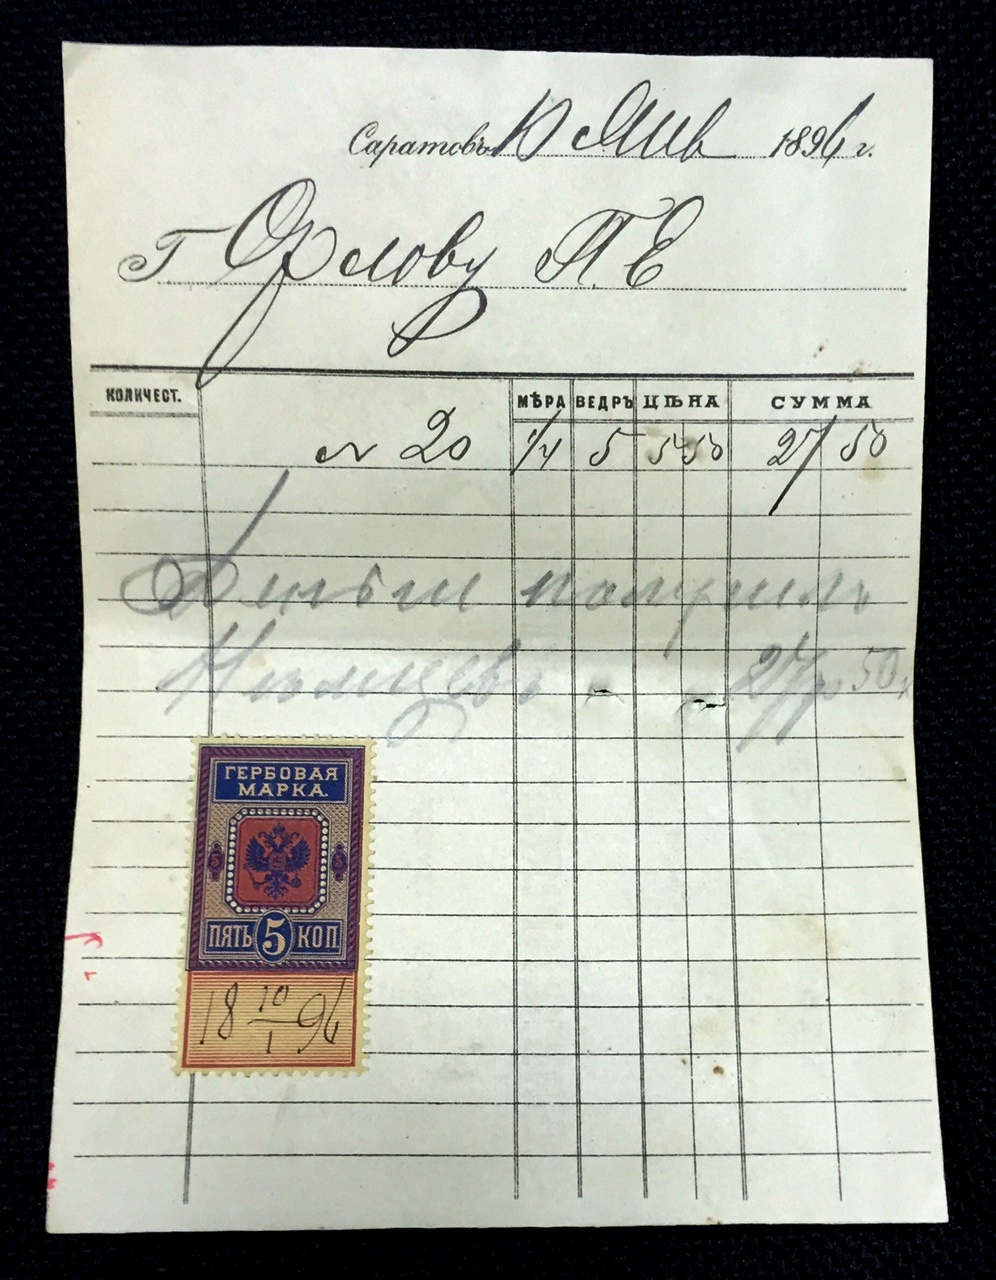 Саратовъ 10 Янв 1896 г.
Г Орлову П. Е
КОЛИЧЕСТ. МѢРА ВЕДРЪ ЦѢНА СУММА
N 20 1/4 5 5 50 27 50
Деньги получилъ
27р 50к
ГЕРБОВАЯ
МАРКА.
5 5
ПЯТЬ 5 КОП
18 10/1 96